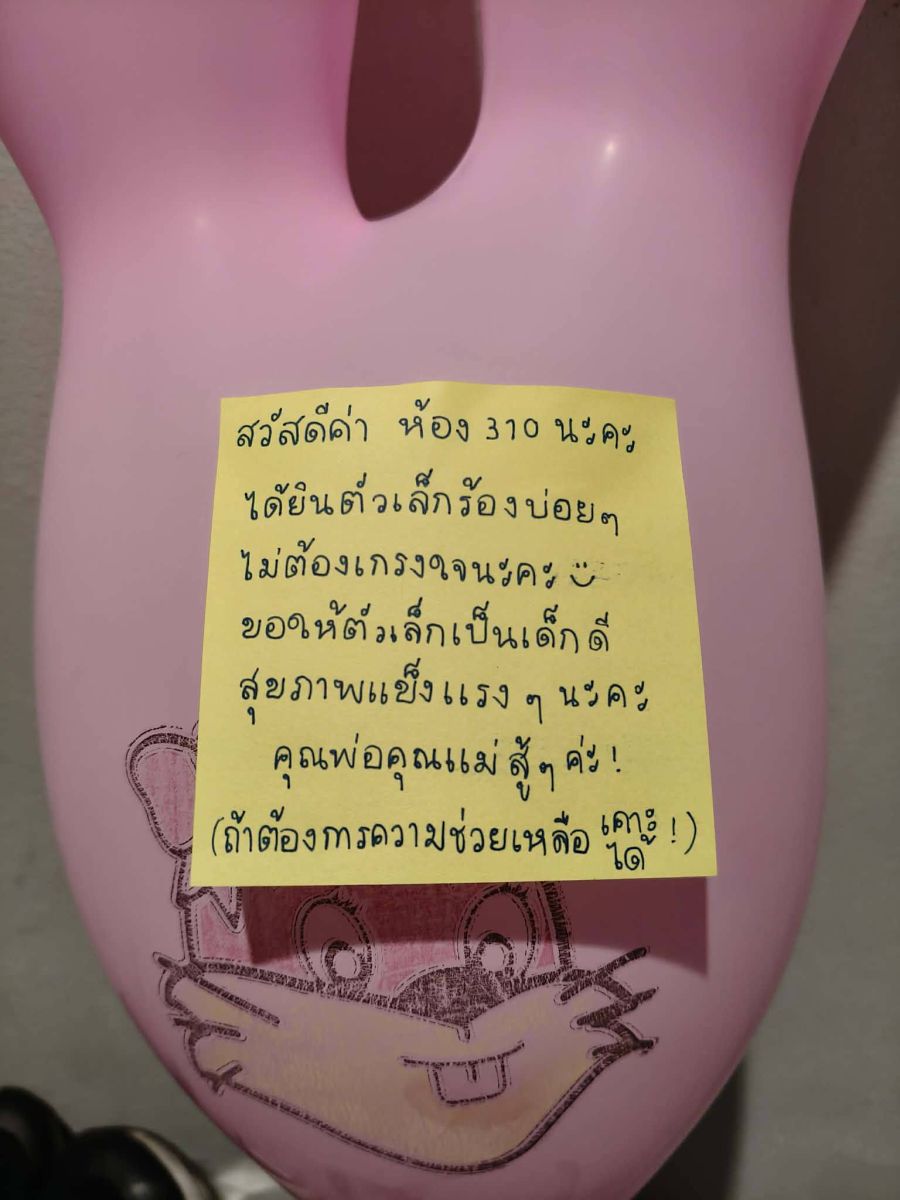 สวัสดีค่า ห้อง 310 นะคะ
ได้ยินตัวเล็กร้องบ่อยๆ
ไม่ต้องเกรงใจนะคะ
ขอให้ตัวเล็กเป็นเด็กดี
สุขภาพแข็งแรง ๆ นะคะ
คุณพ่อคุณแม่ สู้ๆ ค่ะ!
(ถ้าต้องการความช่วยเหลือ เคาะได้ !)